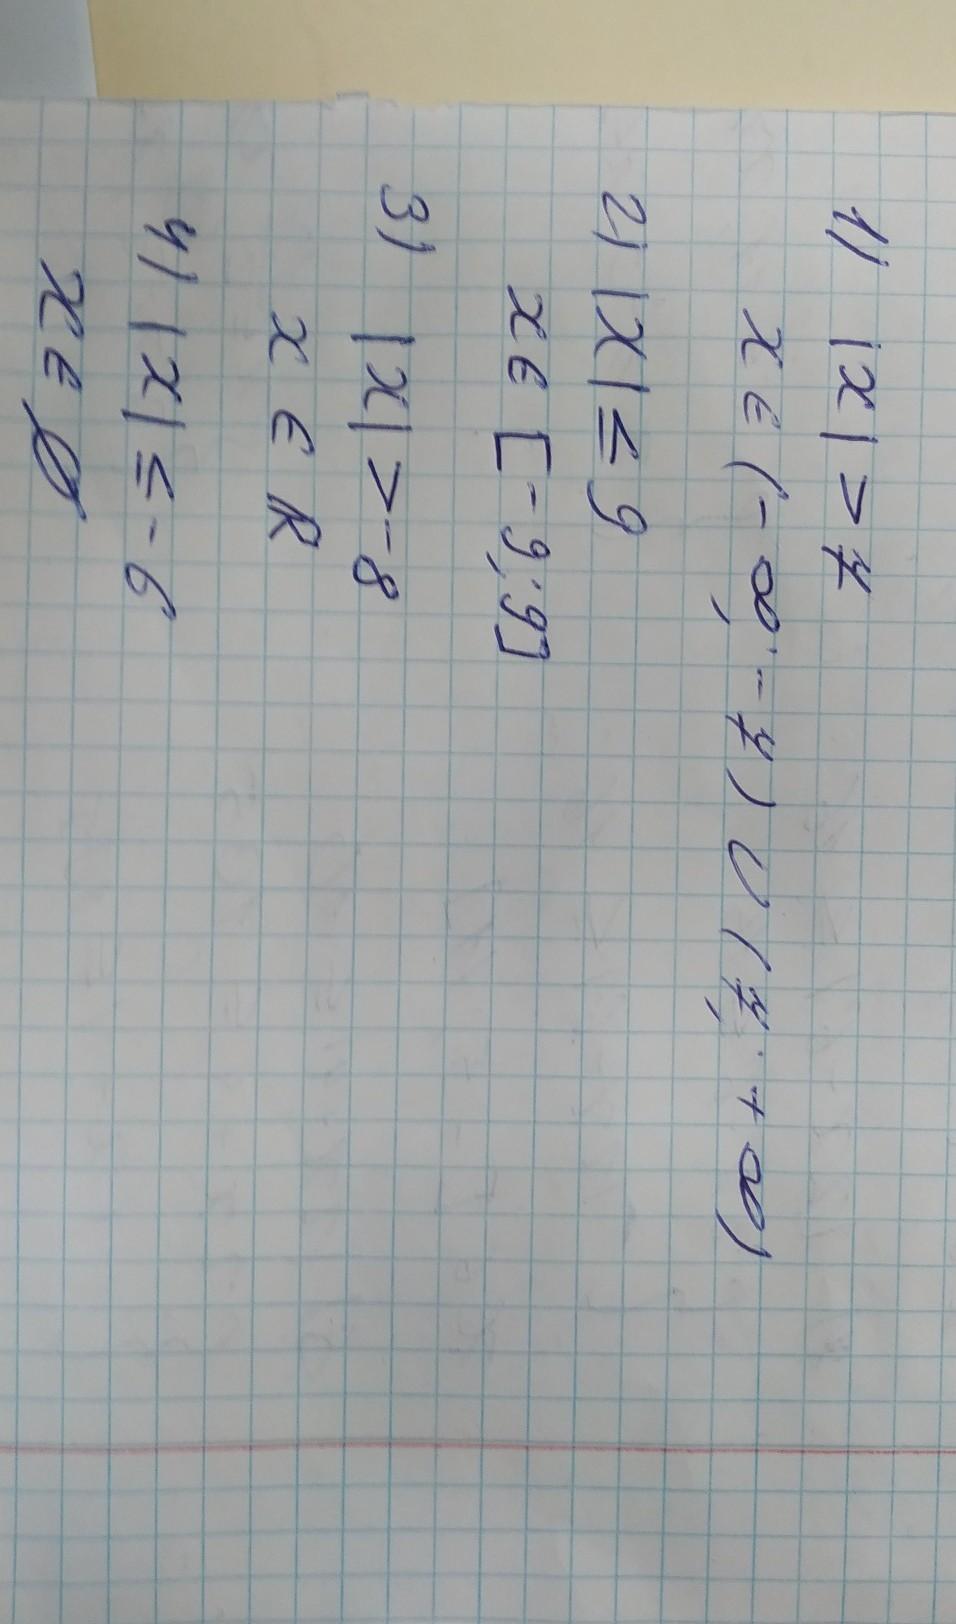 1) |x| > 7
x ∈ (-∞; -7) ∪ (7; +∞)
2) |x| ≤ 9
x ∈ [-9; 9]
3) |x| > -8
x ∈ R
4) |x| ≤ -6
x ∈ ∅